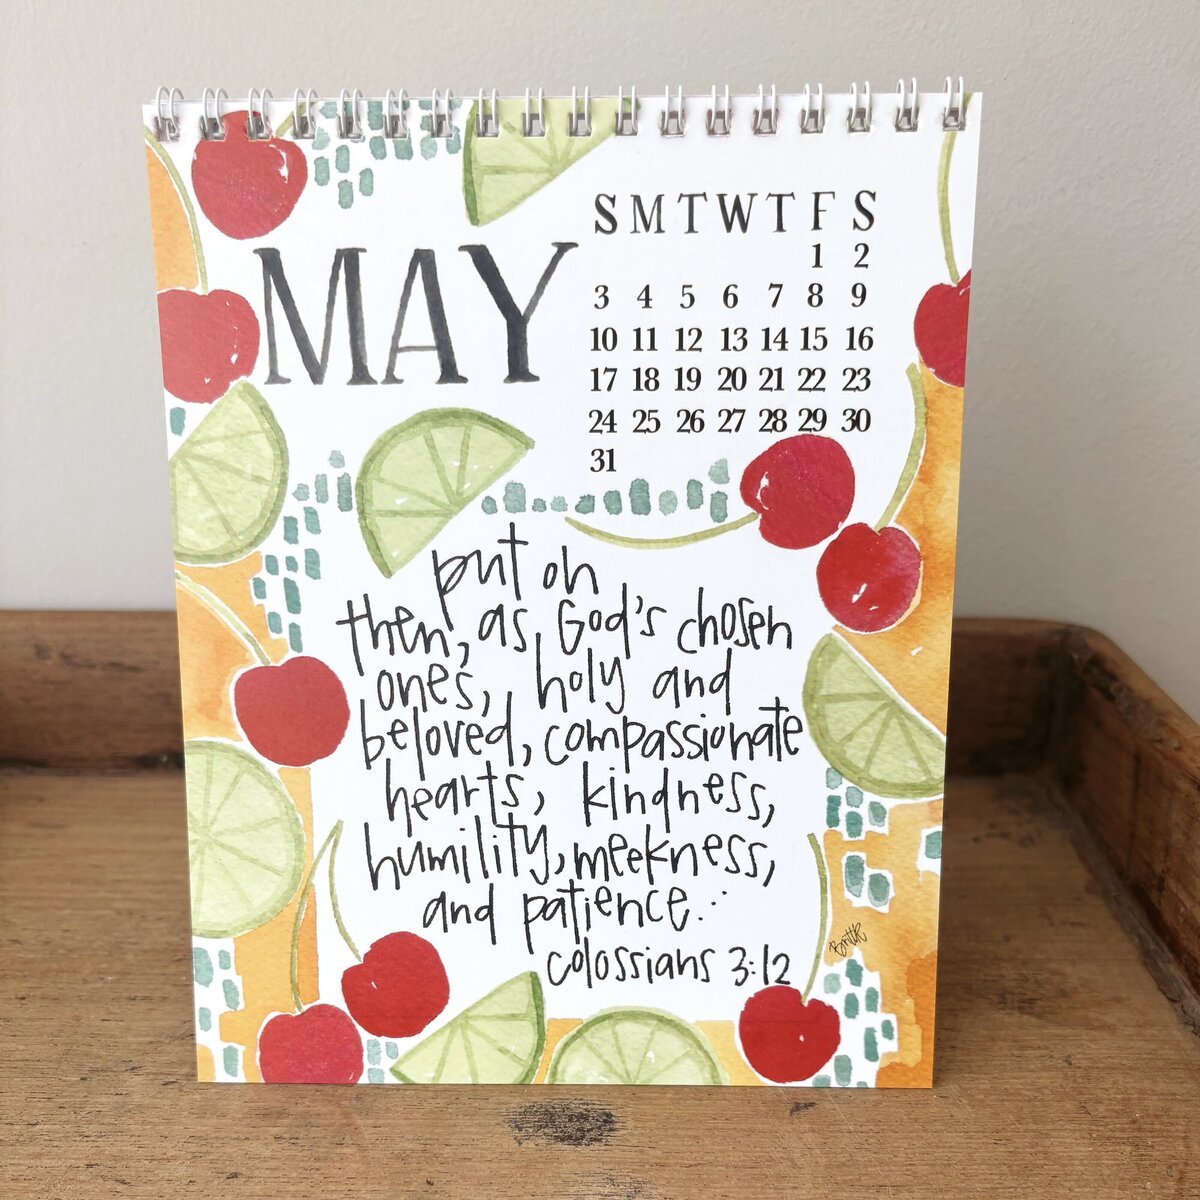 MAY
S M T W T F S
1 2
3 4 5 6 7 8 9
10 11 12 13 14 15 16
17 18 19 20 21 22 23
24 25 26 27 28 29 30
31
put on
then, as, God's chosen
ones, holy and
beloved, compassionate
hearts, kindness,
humility, meekness,
and patience...
colossians 3:12